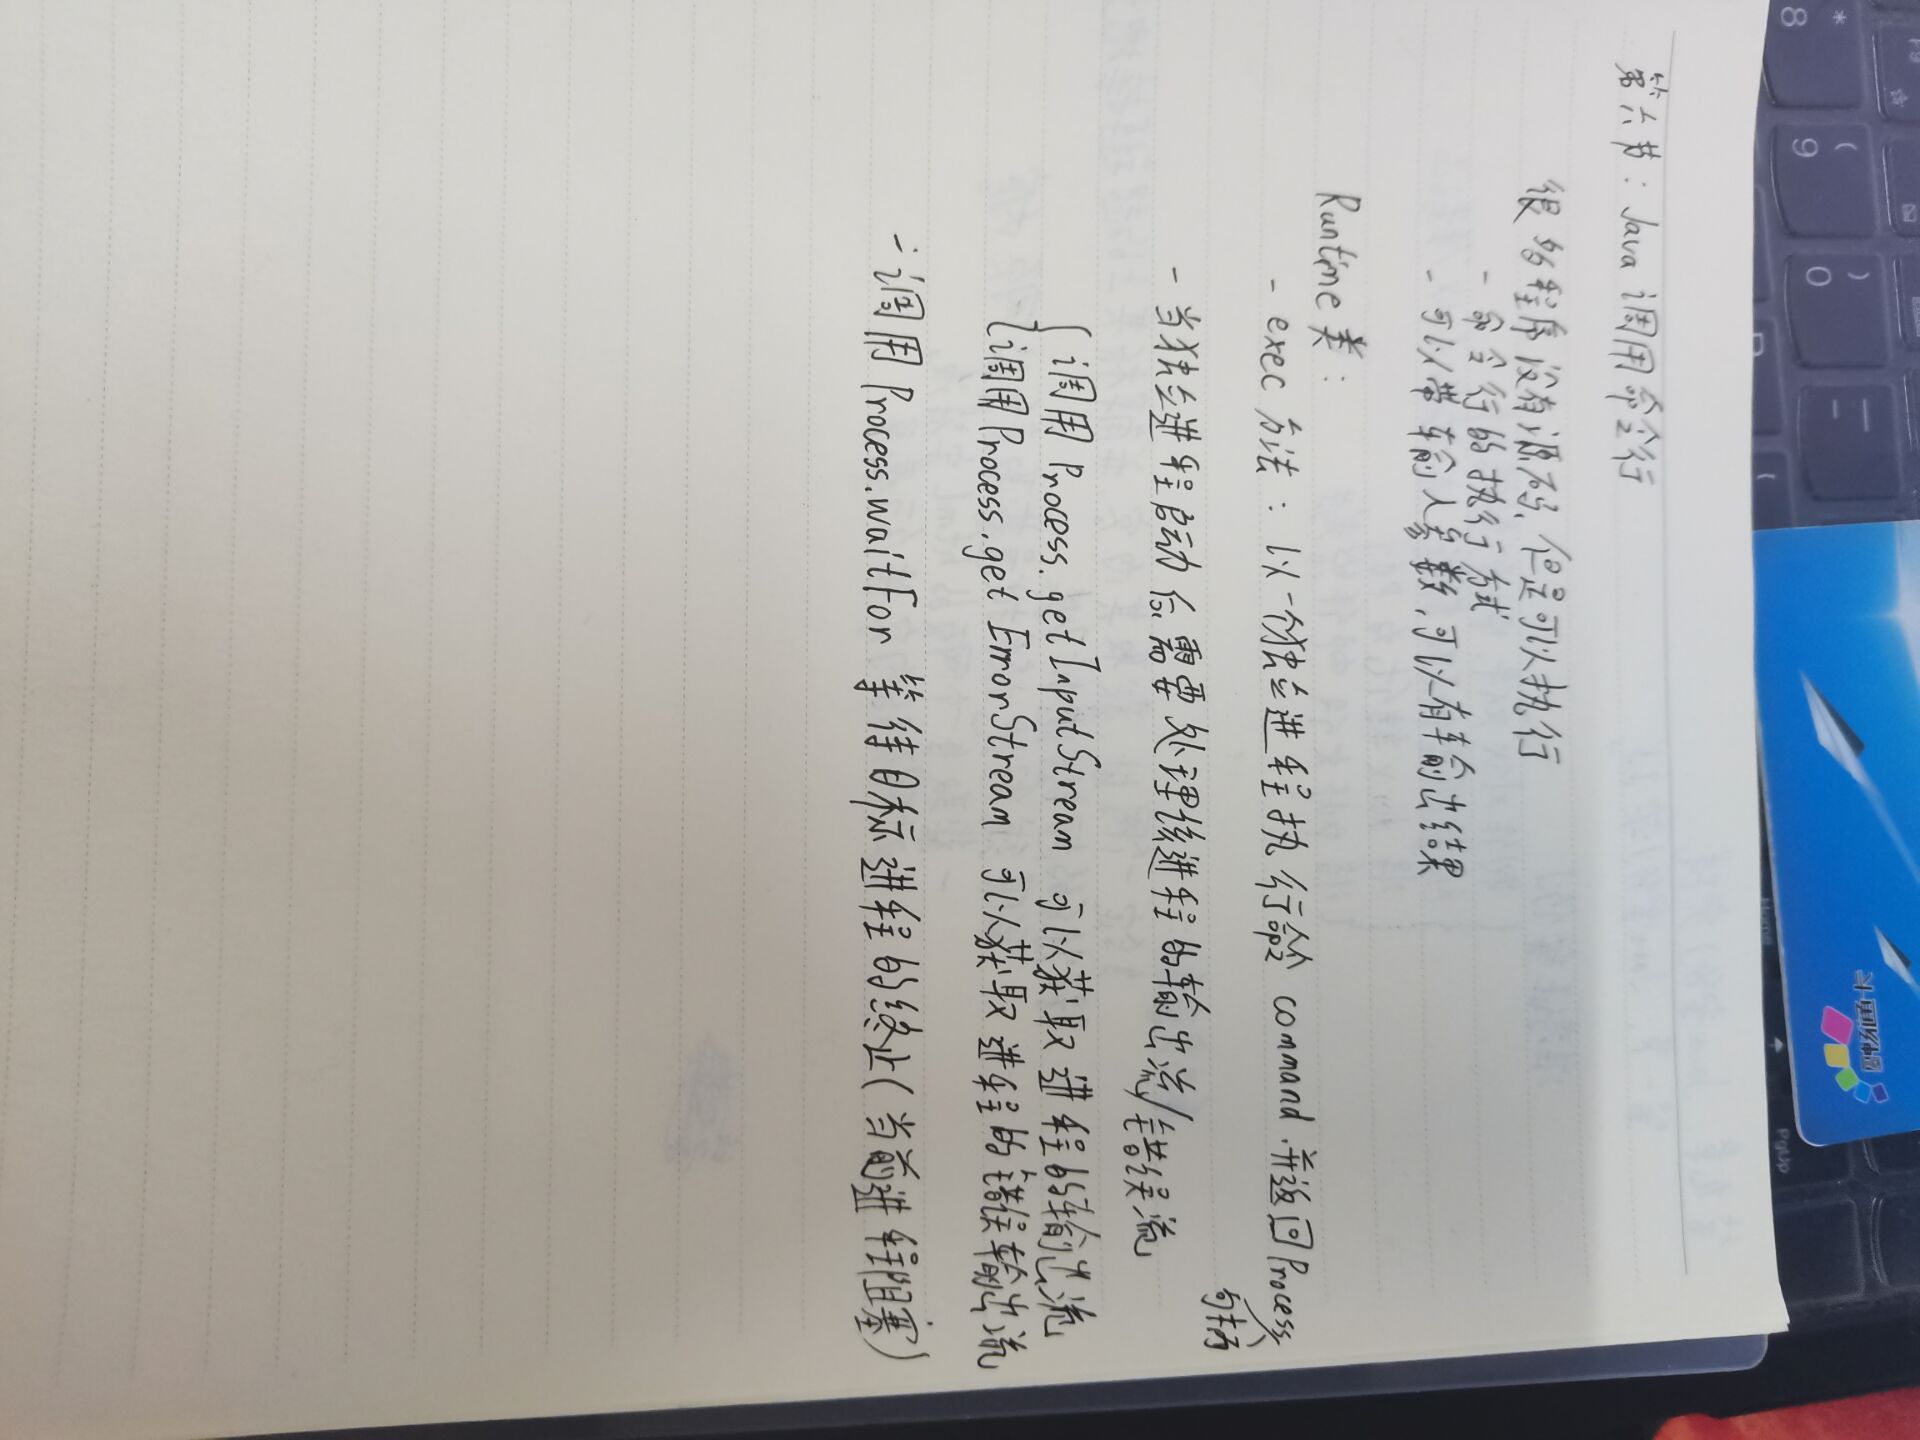 第六节：Java 调用命令行
很多程序没有源码，但是可以执行
- 命令行的执行方式
- 可以带输入参数，可以有输出结果
Runtime 类：
- exec 方法：以一个独立进程执行命令 command. 并返回 Process
句柄
- 当独立进程启动后，需要处理该进程的输出流/错误流
{ 调用 Process.getInputStream 可以获取进程的输出流
{ 调用 Process.getErrorStream 可以获取进程的错误输出流
- 调用 Process.waitFor 等待目标进程的终止(当前进程阻塞)
* 8
( 9
) 0
Home
PgUp